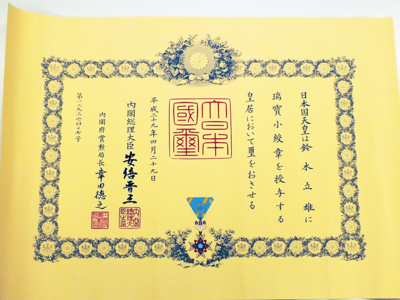 日本国天皇は鈴木立雄に
瑞寶小綬章を授与する
皇居において璽をおさせる
大日本
國璽
平成二十九年四月二十九日
内閣総理大臣 安倍晋三
内閣府賞勲局長 幸田徳之